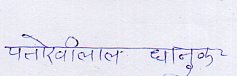 पतोखीलाल धानुक